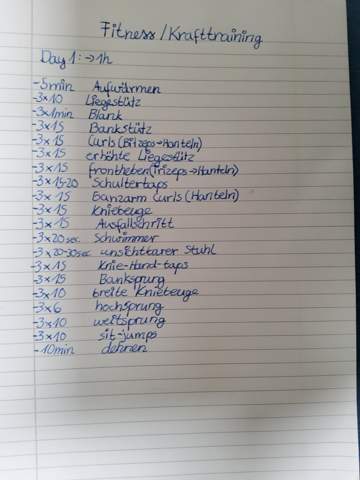 Fitness/Krafttraining
Day 1: → 1h
- 5min Aufwärmen
- 3×10 Liegestütz
- 3×1min Blank
- 3×15 Bankstütz
- 3×15 Curls (Bizeps → Hanteln)
- 3×15 erhöhte Liegestütz
- 3×15 frontheben (Trizeps → Hanteln)
- 3×15-20 Schultertaps
- 3×15 Banzarm Curls (Hanteln)
- 3×15 Kniebeuge
- 3×15 Ausfallschritt
- 3×20sec. Schwimmer
- 3×20-30sec unsichtbarer Stuhl
- 3×15 Knie-Hand-taps
- 3×15 Banksprung
- 3×10 breite Kniebeuge
- 3×6 hochsprung
- 3×10 weitsprung
- 3×10 sit-jumps
- 10min dehnen